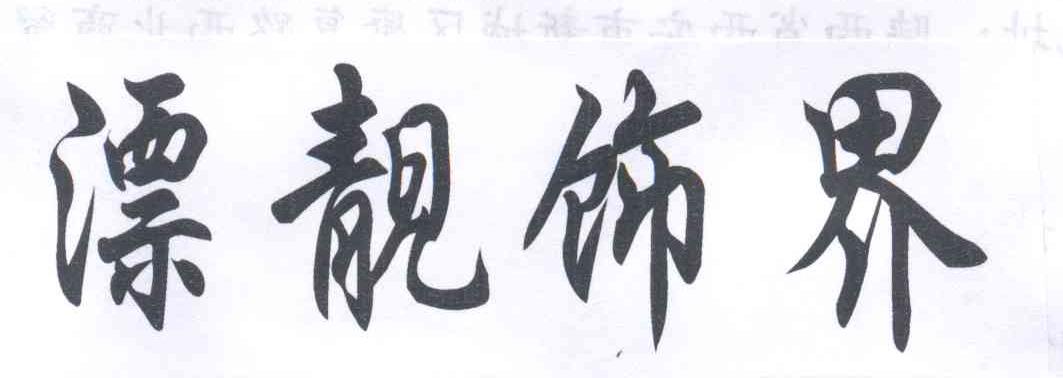 漂靓饰界